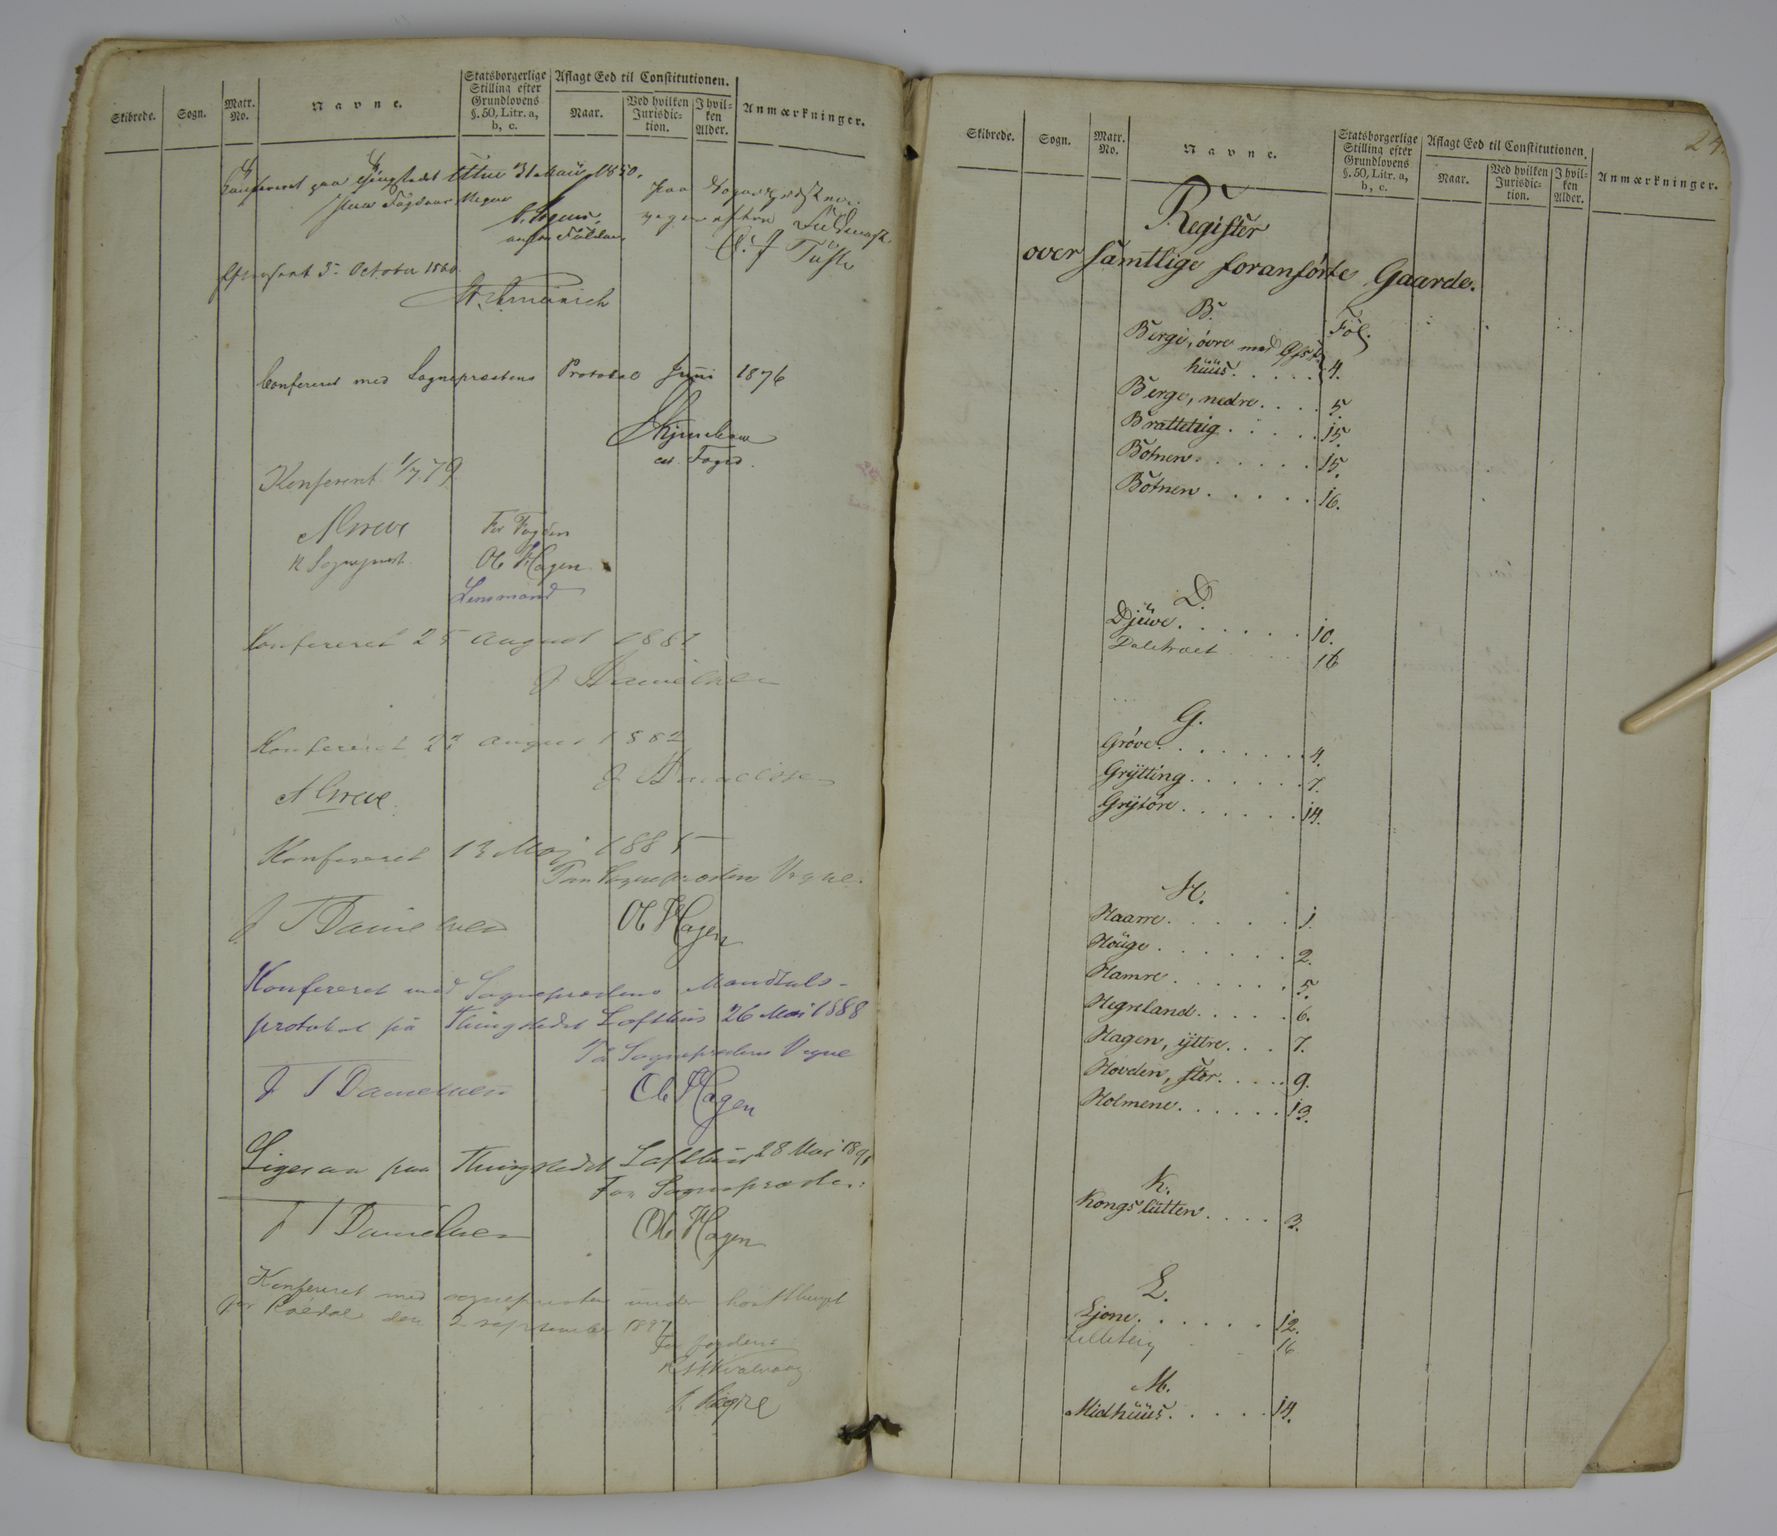 Skibrede.
Sogn.
Matr. No.
Navne.
Statsborgerlige Stilling efter Grundlovens §. 50, Litr. a, b, c.
Aflagt Eed til Constitutionen.
Naar.
Ved hvilken Jurisdiction.
I hvilken Alder.
Anmærkninger.
Confereret paa Thingstedet 31 1850.
October 1860
Confereret med Sognepræstens Protocol Juni 1876
cst. Foged.
Konfereret 1/7 79
A Greve
For Fogden
Sognepræst.
Ole Hagen
Lensmand
Konfereret 25 august 1881
J Danielsen
Konfereret 22 august 1882
J Danielsen
A Greve.
Konfereret 13 Maj 1885
Paa Sognepræstens Vegne.
J T Danielsen
Ole Hagen
Konfereret med Sognepræstens Mandtals-
protokol på Thingstedet Lofthus 26 Mai 1888
På Sognepræstens Vegne
J T Danielsen
Ole Hagen
Ligesaa paa Thingstedet Lofthus 28 Mai 1891
For Sognepræsten:
J T Danielsen
Ole Hagen
Konfereret med sognepresten under høstthinget
for Røldal den 2 september 1897
For fogden:
24.
Skibrede.
Sogn.
Matr. No.
Navne.
Statsborgerlige Stilling efter Grundlovens §. 50, Litr. a, b, c.
Aflagt Eed til Constitutionen.
Naar.
Ved hvilken Jurisdiction.
I hvilken Alder.
Anmærkninger.
Register
over samtlige foranførte Gaarde.
B. Fol.
Berge, øvre med
huus. . . . . 4.
Berge, nedre. . . . 5.
Bratteteig. . . . . 15.
Botnen. . . . . . 15.
Botnen. . . . . . 16.
D.
Djuve. . . . . . 10.
Daletræet . . . . 16
G.
Grøve. . . . . . . 4.
Grytting. . . . . . 7.
Grytøre. . . . . . 14.
H.
Haarre. . . . . . 1.
Houge. . . . . . 2.
Hamre. . . . . . 5.
Hegreland. . . . . 6.
Hagen, yttre. . . . 7.
Hovden, stor. . . . . 9.
Holmene. . . . . . 13.
K.
Kongslutten. . . . 3.
L.
Ljone. . . . . . 12.
Lilleteig . . 16
M.
Midhuus. . . . . 14.